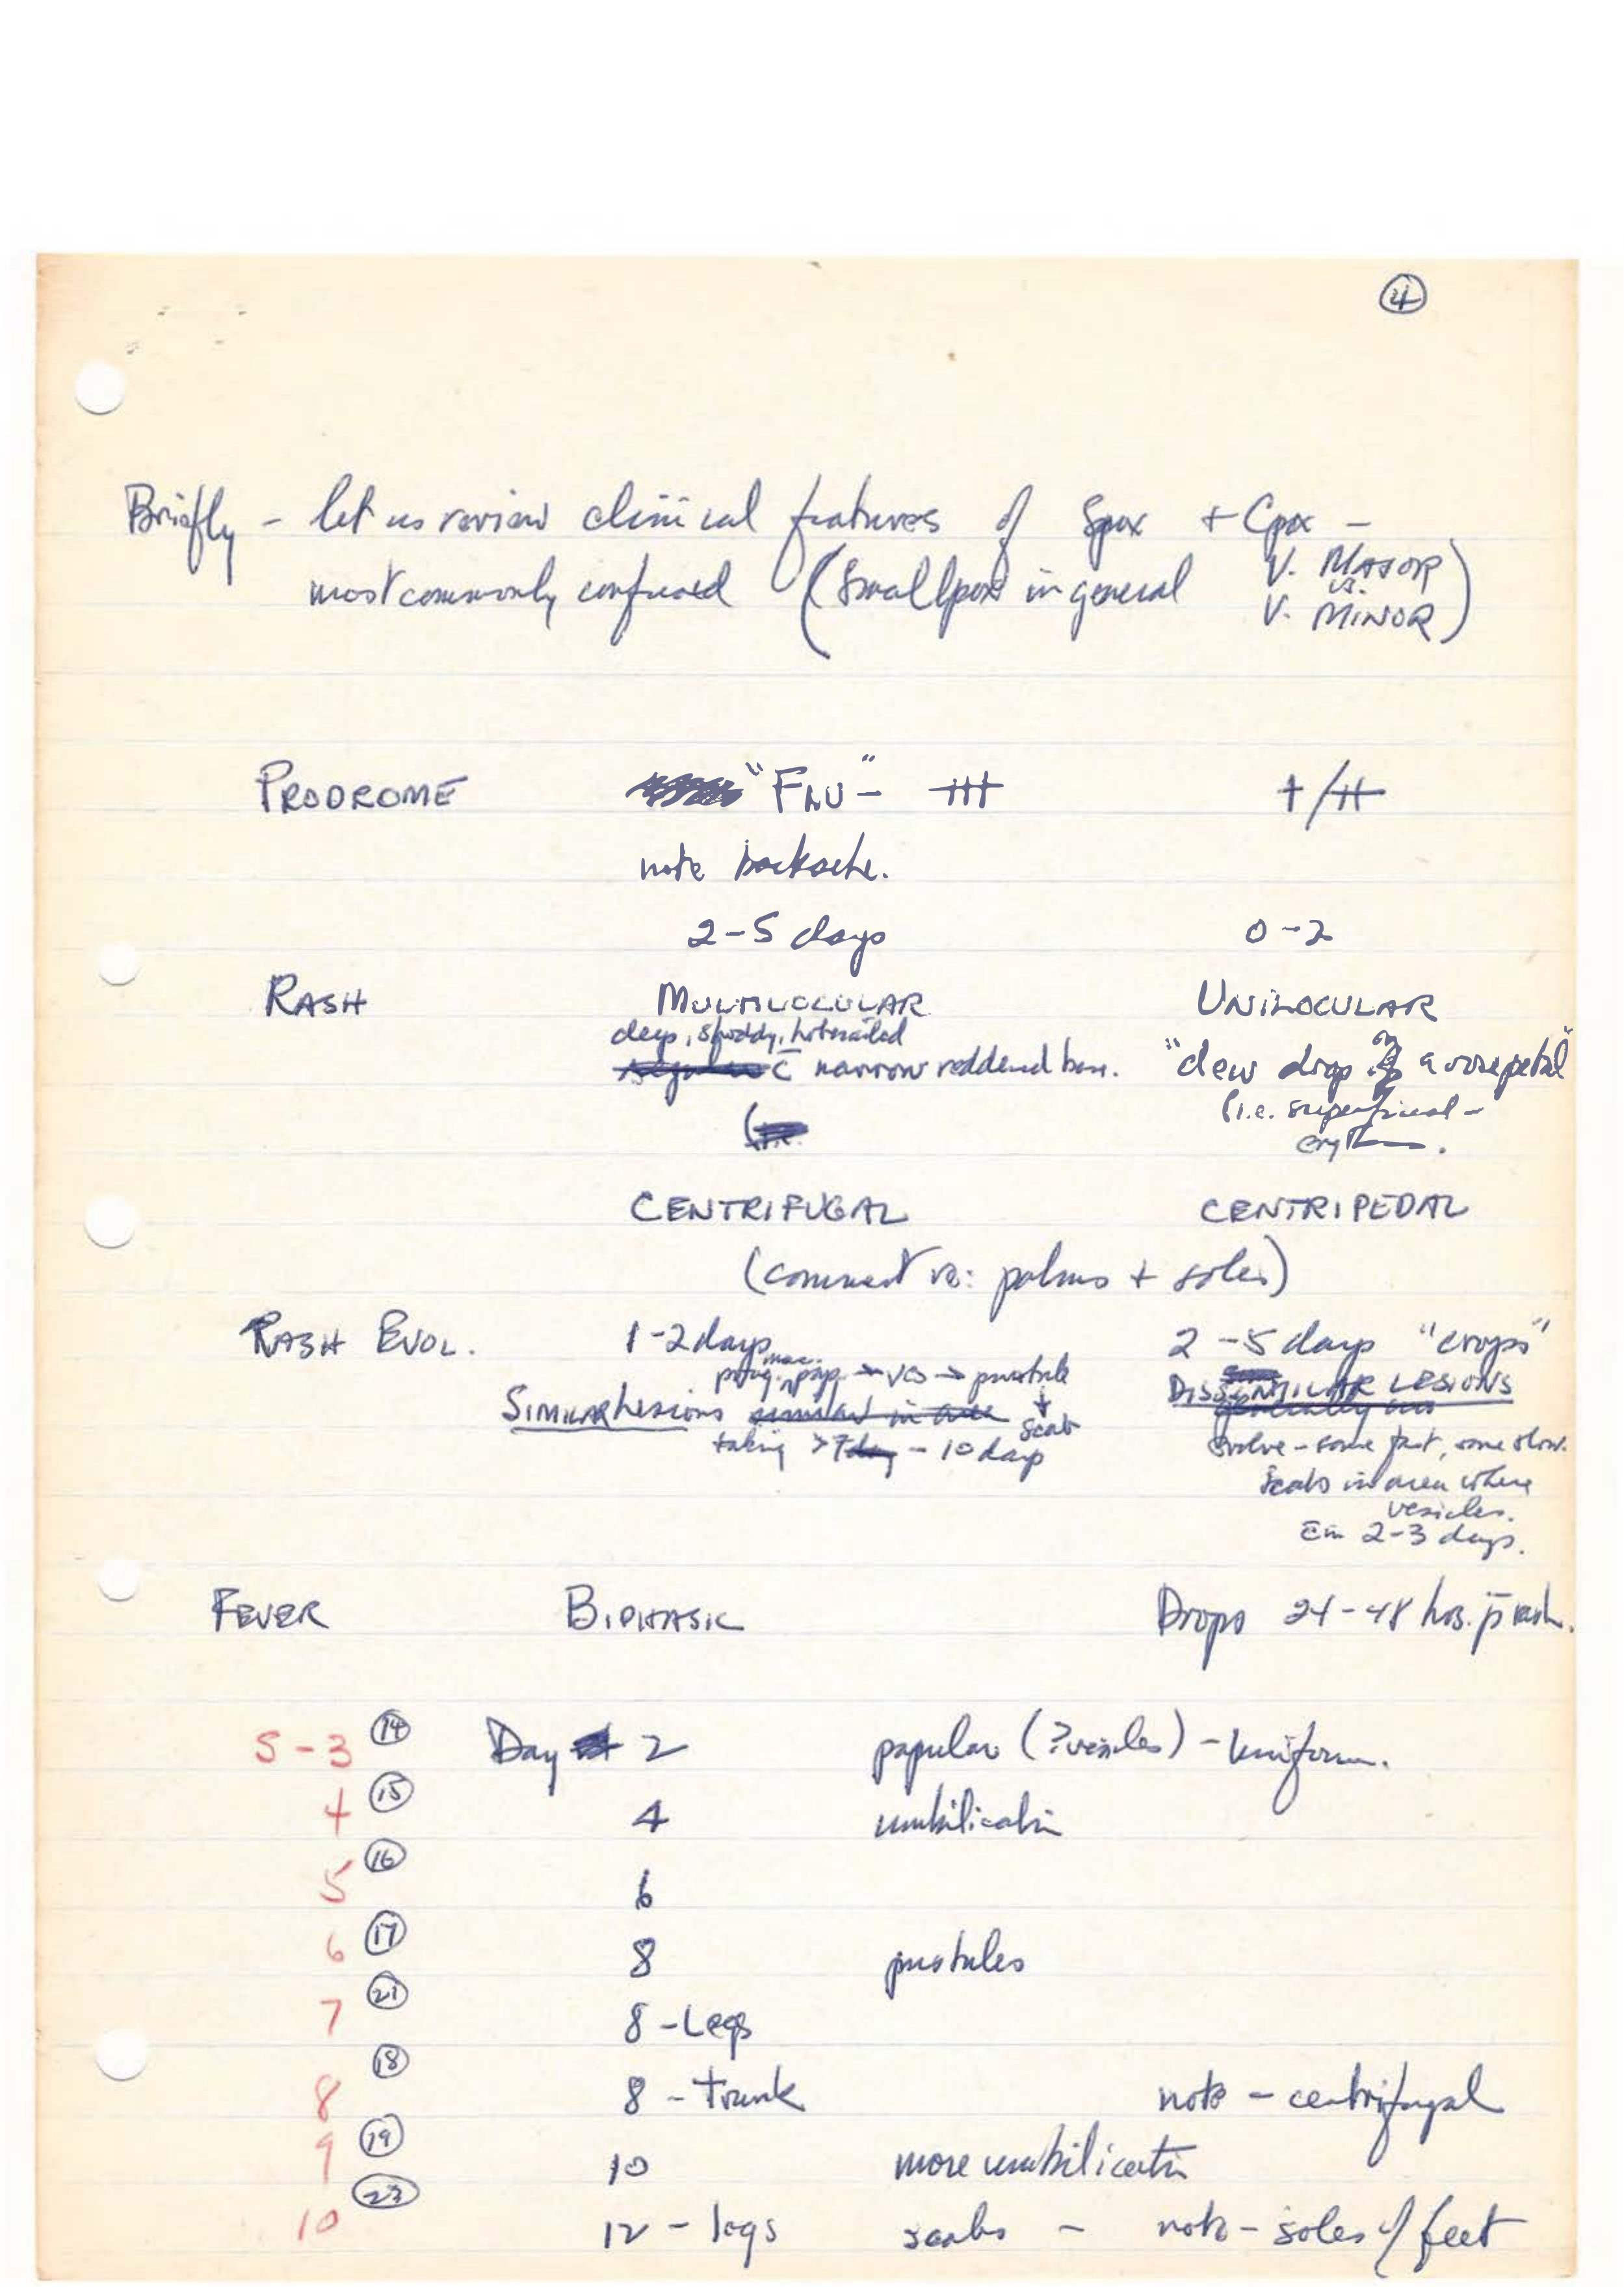 4
Briefly - let us review clinical features of Spox + Cpox -
most commonly confused (Smallpox in general V. MAJOR
vs.
V. MINOR)
PRODROME "FLU" - +++ + / ++
note backache.
2-5 days 0-2
RASH MULTILOCULAR UNILOCULAR
deep, shoddy, hobnailed "dew drop on a rosepetal"
c̄ narrow reddened base. (i.e. superficial -
eryth.
CENTRIFUGAL CENTRIPEDAL
(comment re: palms + soles)
RASH EVOL. 1-2 days 2-5 days "crops"
mac. pap → ves → pustule DISSIMILAR LESIONS
SIMILAR lesions ↓ scab
taking > 7 - 10 days evolve - some fast, some slow.
Scabs in area where
vesicles.
in 2-3 days.
FEVER BIPHASIC Drops 24-48 hrs. p̄ rash.
S-3 14 Day 2 papular (? vesicles) - Uniform.
4 15 4 umbilicatin
5 16 6
6 17 8 pustules
7 21 8 - Legs
8 18 8 - Trunk note - centrifugal
9 19 10 more umbilicatn
10 23 12 - legs scabs - note - soles of feet